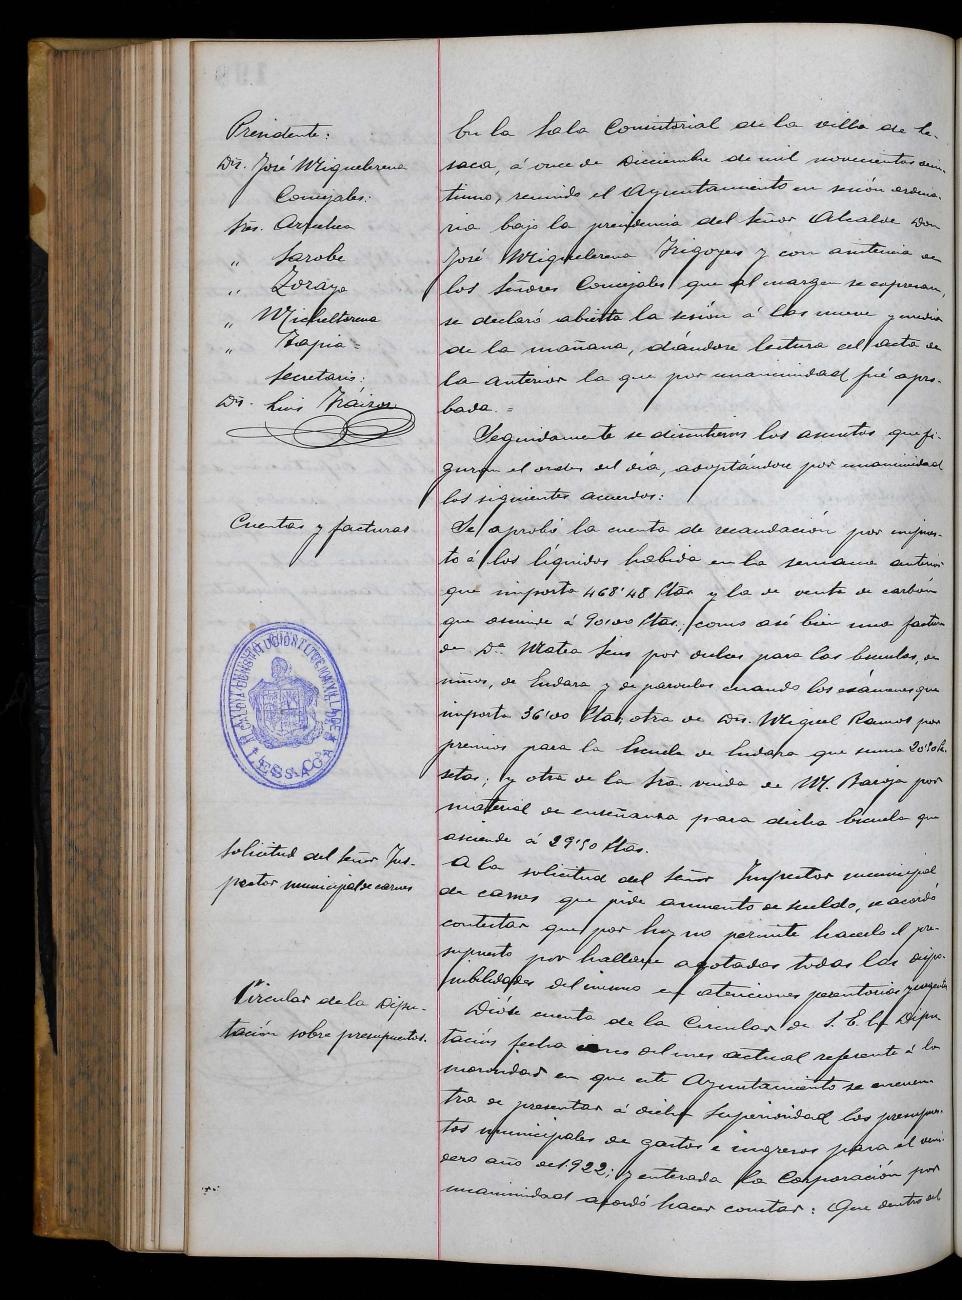 Presidente:
Dn. José Miquelerena
Concejales:
Sres. Arfulea
„ Sarobe
„ Zoraya
„ Micheltorena
„ Tapia =
Secretario:
Dn. Luis Iráizoz
En la Sala Consistorial de la villa de Le-
saca, á once de Diciembre de mil novecientos vein-
tiuno, reunido el Ayuntamiento en sesión ordina-
ria bajo la presidencia del Señor Alcalde Don
José Miquelerena Irigoyen y con asistencia de
los Señores Concejales que al margen se expresan,
se declaró abierta la sesión á las nueve y media
de la mañana, dándose lectura del acta de
la anterior la que por unanimidad fué apro-
bada. =
Seguidamente se discutieron los asuntos que fi-
guran el orden del día, adoptándose por unanimidad
los siguientes acuerdos:
Cuentas y facturas
Se aprobó la cuenta de recaudación por impues-
to á los líquidos habida en la semana anterior
que importa 468'48 Ptas. y la de venta de carbón
que asciende á 90'00 Ptas., como así bien una factura
de Da. Matea Sens por dulces para las Escuelas, de
niños, de Endara y de párvulos cuando los exámenes que
importa 36'00 Ptas, otra de Dn. Miguel Ramos por
premios para la Escuela de Endara que suma 20'50 Pe-
setas; y otra de la Sra. viuda de M. Baroja por
material de enseñanza para dicha Escuela que
asciende á 29'50 Ptas.
ALCALDIA CONSTITUCIONAL DE LA VILLA DE
LESACA
Solicitud del Señor Ins-
pector municipal de carnes
A la solicitud del Señor Inspector municipal
de carnes que pide aumento de sueldo, se acordó
contestar que por hoy no permite hacerlo el pre-
supuesto por hallarse agotadas todas las dispo-
nibilidades del mismo en atenciones perentorias y urgentes
Circular de la Dipu-
tación sobre presupuestos.
Dióse cuenta de la Circular de S. E. la Dipu
tación fecha del mes actual referente á la
morosidad en que este Ayuntamiento se encuen-
tra de presentar á dicha Superioridad los presupues-
tos municipales de gastos é ingresos para el veni-
dero año de 1922; y enterada la Corporación por
unanimidad acordó hacer constar: Que dentro del